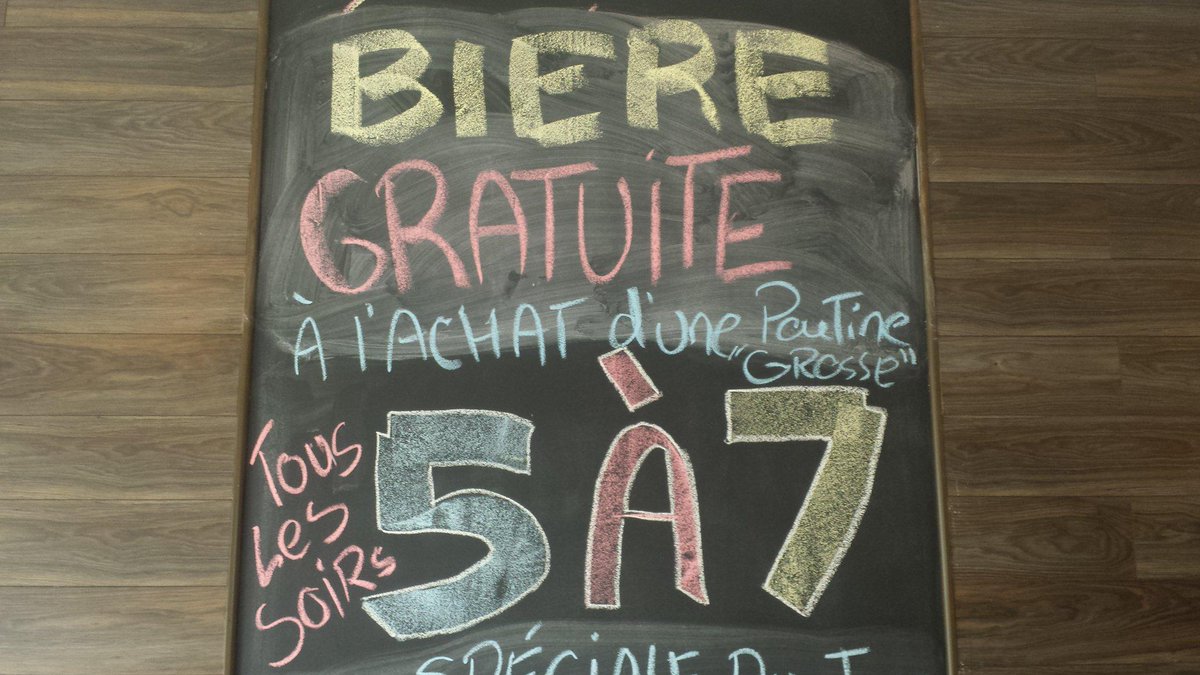 BIÈRE
GRATUITE
À L'ACHAT d'une Poutine
"GROSSE"
5 À 7
Tous
Les
SoiRs
SPÉCIALE